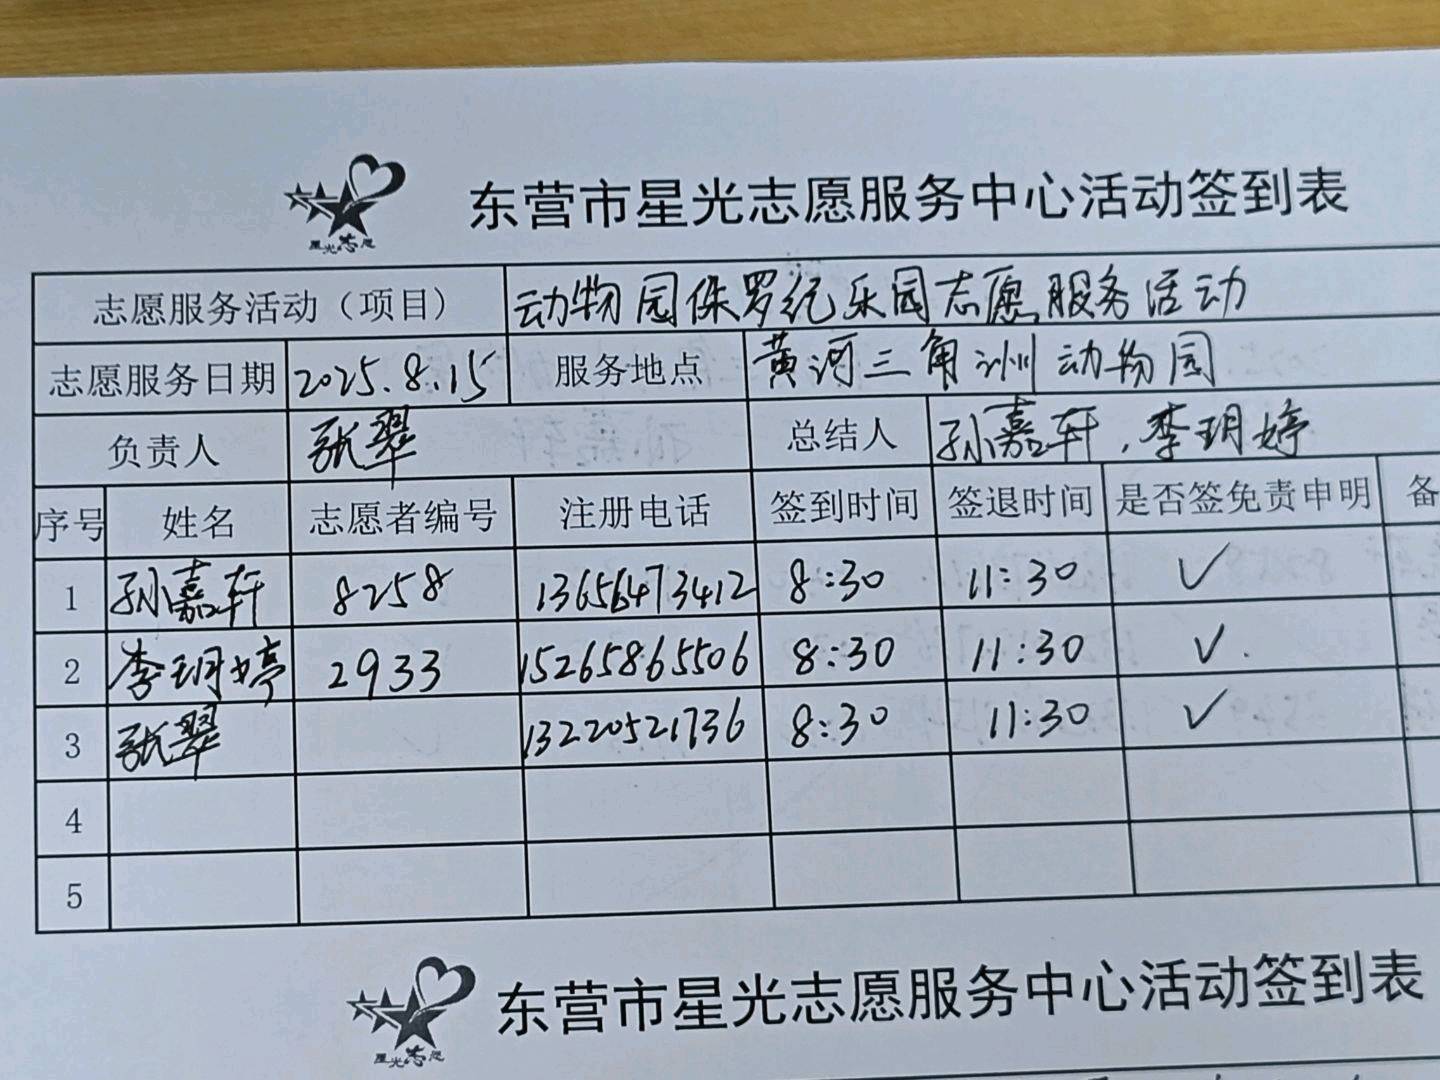 星光志愿
东营市星光志愿服务中心活动签到表
志愿服务活动（项目） 动物园侏罗纪乐园志愿服务活动
志愿服务日期 2025.8.15 服务地点 黄河三角洲动物园
负责人 张翠 总结人 孙嘉轩，李玥婷
序号 姓名 志愿者编号 注册电话 签到时间 签退时间 是否签免责申明 备
1 孙嘉轩 8258 13656473412 8:30 11:30 ✓
2 李玥婷 2933 15265865506 8:30 11:30 ✓
3 张翠 13220521736 8:30 11:30 ✓
4
5
星光志愿
东营市星光志愿服务中心活动签到表